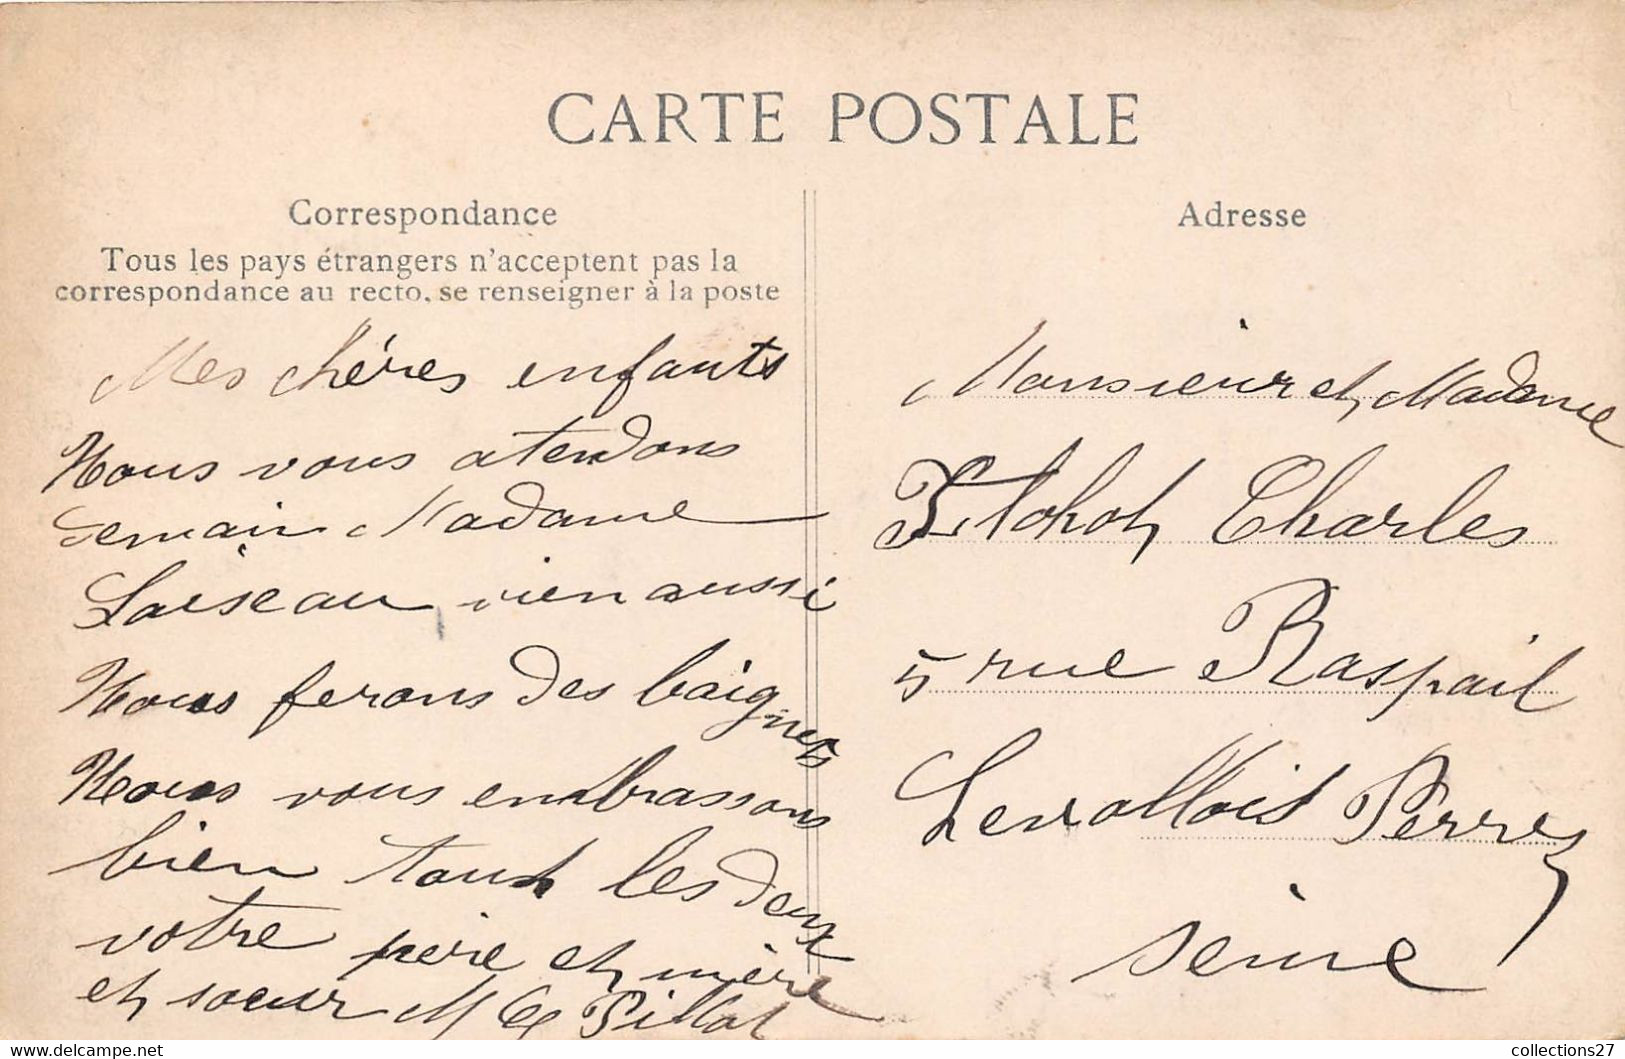 CARTE POSTALE
Correspondance
Tous les pays étrangers n'acceptent pas la
correspondance au recto, se renseigner à la poste
Mes chéres enfants
Nous vous atendons
demain Madame
Loiseau vien aussi
Nous ferons des baignets
Nous vous embrassons
bien tout les deux
votre père et mère
et sœur M Pillot
Adresse
Monsieur et Madame
Charles
5 rue Raspail
Levallois Perret
Seine
collections27